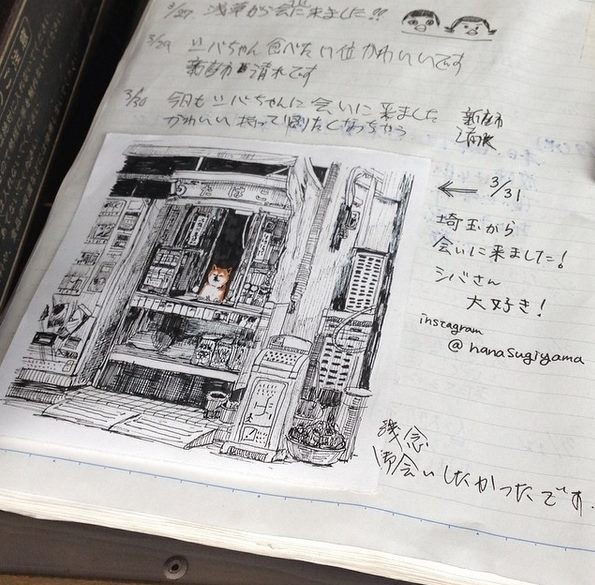 3/27 浅草から会いに来ました!!
3/29 シバちゃん食べたい位かわいいです
新座市 清水です
3/30 今日もシバちゃんに会いに来ました
かわいい 持って帰りたくなっちゃう
新座市
清水
3/31
埼玉から
会いに来ました!
シバさん
大好き!
instagram
@hanasugiyama
残念
お会いしたかったです。